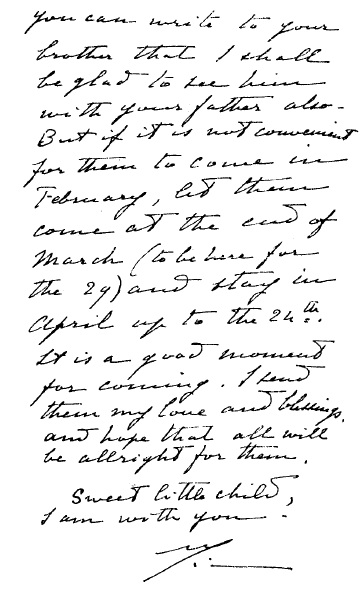 you can write to your
brother that I shall
be glad to see him
with your father also -
But if it is not convenient
for them to come in
February, let them
come at the end of
March (to be here for
the 29) and stay in
April up to the 24th.
It is a good moment
for coming. I send
them my love and blessings,
and hope that all will
be allright for them.
Sweet little child,
I am with you -